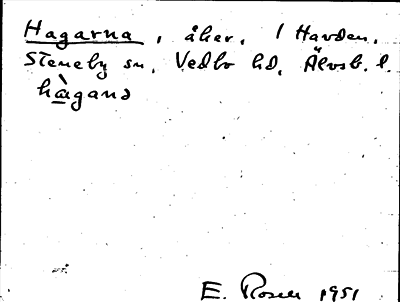 Hagarna, åker, 1 Havden,
Steneby sn, Vedbo hd, Älvsb. l.
hàgană
E. Rosell 1951